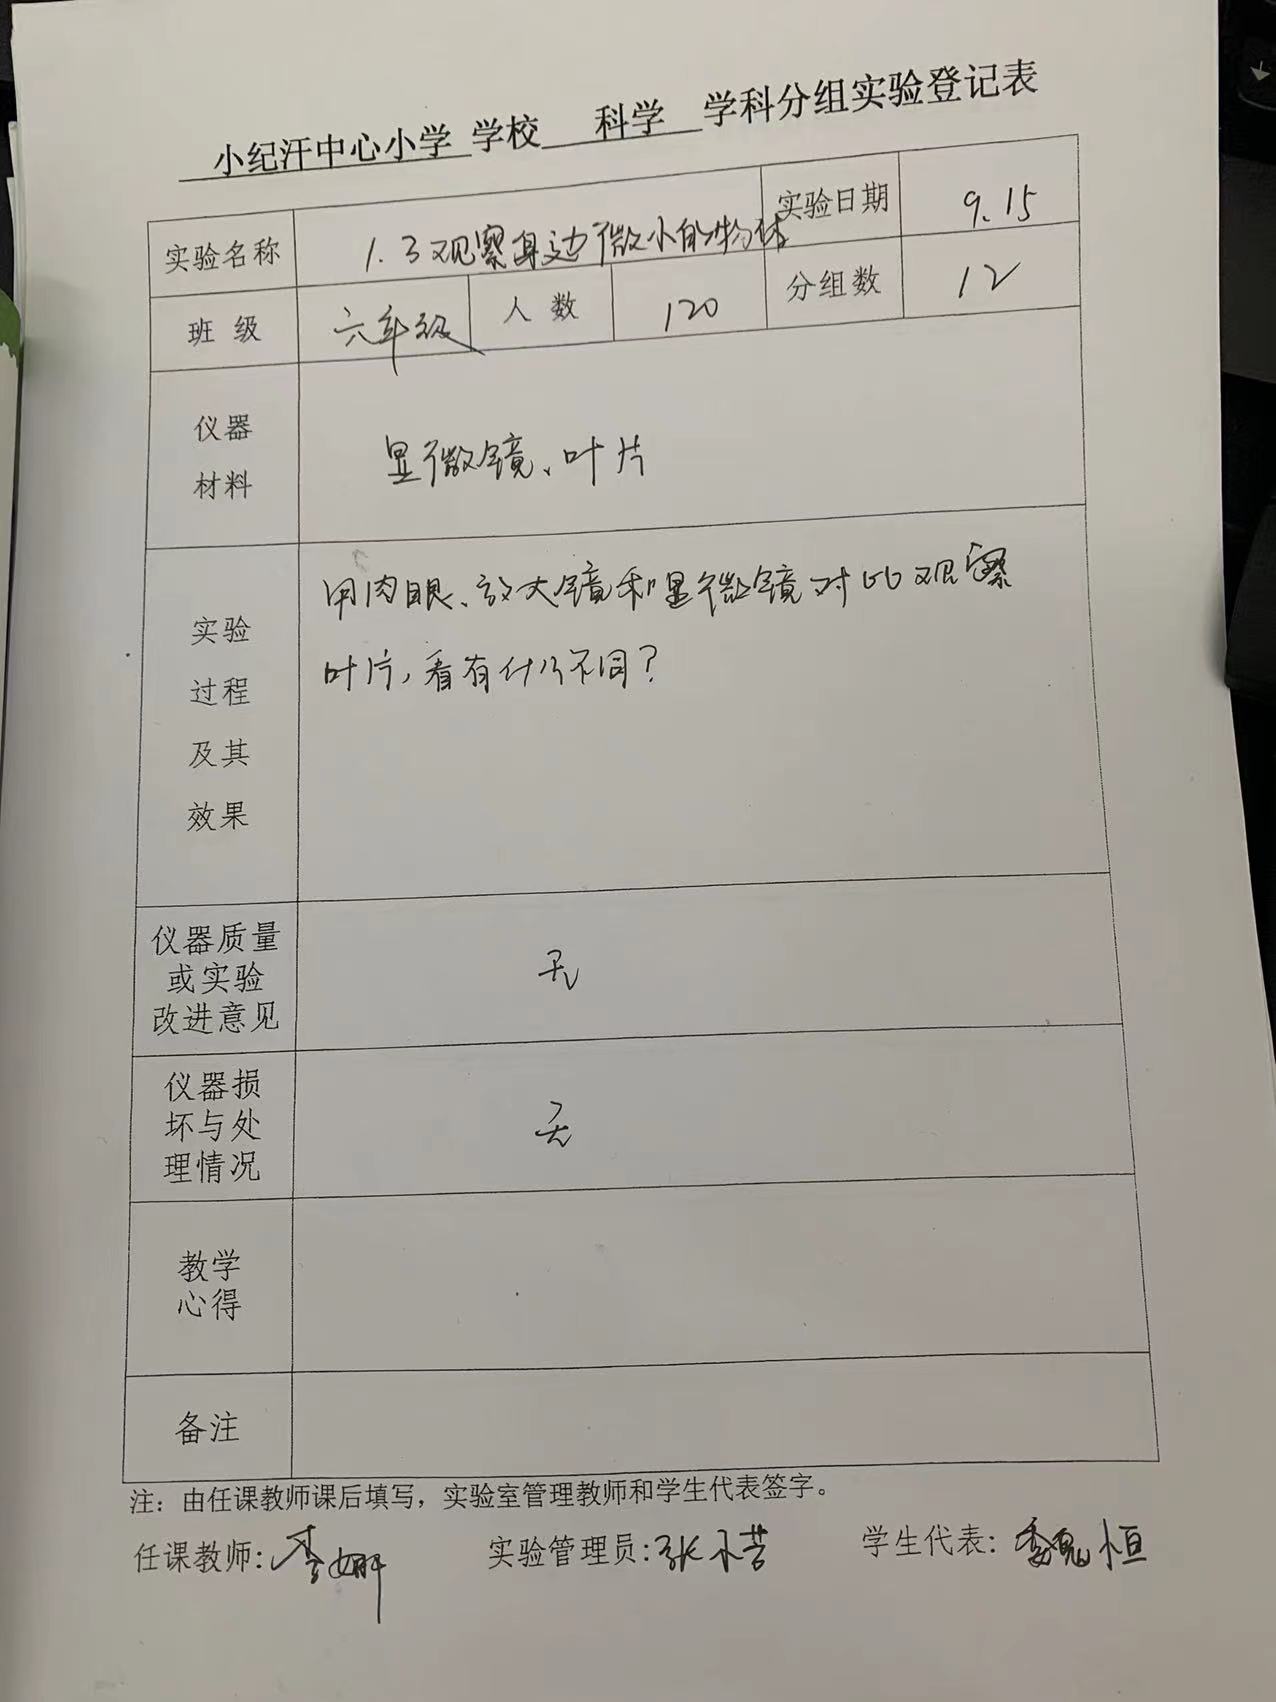 小纪汗中心小学 学校 科学 学科分组实验登记表
实验名称 1.3观察身边微小的物体 实验日期 9.15
班 级 六年级 人 数 120 分组数 12
仪器
材料
显微镜、叶片
实验
过程
及其
效果
用肉眼、放大镜和显微镜对比观察
叶片,看有什么不同?
仪器质量
或实验
改进意见
无
仪器损
坏与处
理情况
无
教学
心得
备注
注：由任课教师课后填写，实验室管理教师和学生代表签字。
任课教师:李姗 实验管理员:张小芸 学生代表:魏恒